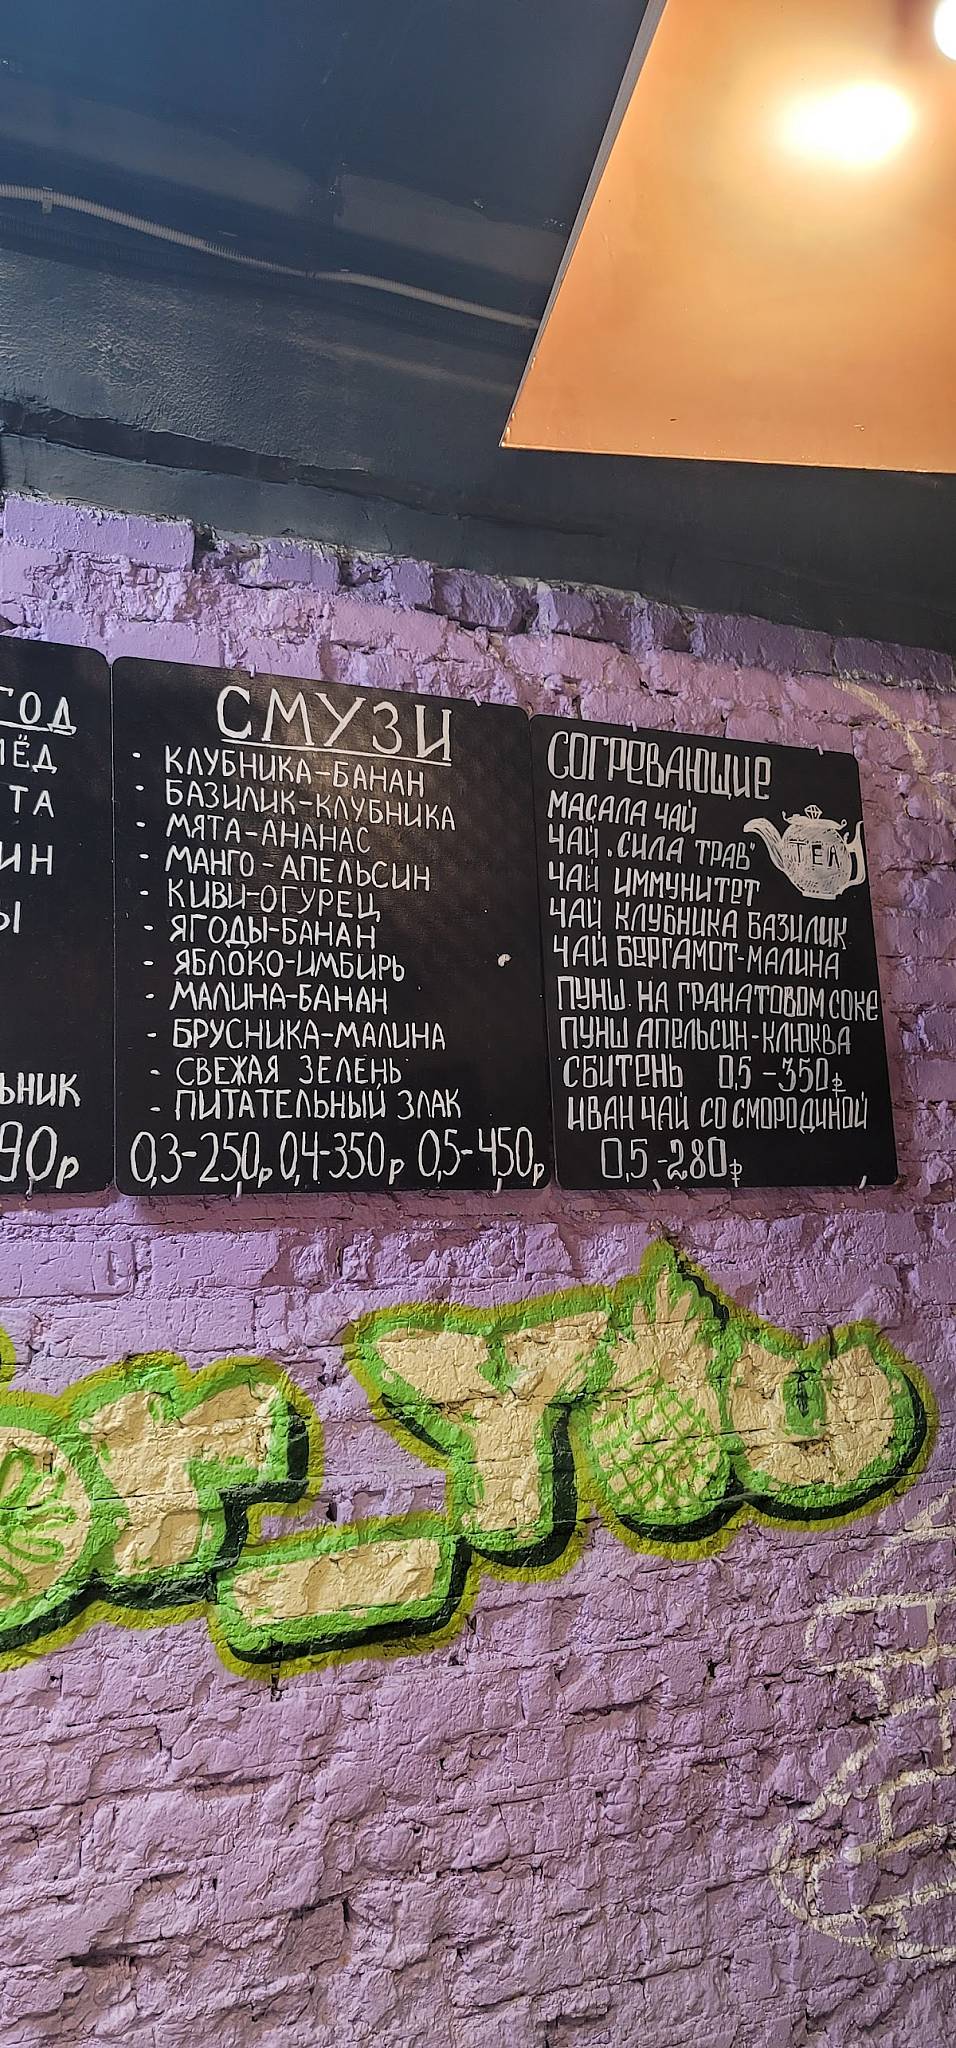 СМУЗИ
- КЛУБНИКА-БАНАН
- БАЗИЛИК-КЛУБНИКА
- МЯТА-АНАНАС
- МАНГО-АПЕЛЬСИН
- КИВИ-ОГУРЕЦ
- ЯГОДЫ-БАНАН
- ЯБЛОКО-ИМБИРЬ
- МАЛИНА-БАНАН
- БРУСНИКА-МАЛИНА
- СВЕЖАЯ ЗЕЛЕНЬ
- ПИТАТЕЛЬНЫЙ ЗЛАК
0,3-250р 0,4-350р 0,5-450р
СОГРЕВАЮЩИЕ
МАСАЛА ЧАЙ
ЧАЙ „СИЛА ТРАВ"
ЧАЙ ИММУНИТЕТ
ЧАЙ КЛУБНИКА БАЗИЛИК
ЧАЙ БЕРГАМОТ-МАЛИНА
ПУНШ НА ГРАНАТОВОМ СОКЕ
ПУНШ АПЕЛЬСИН-КЛЮКВА
СБИТЕНЬ 0,5-350₽
ИВАН ЧАЙ СО СМОРОДИНОЙ
0,5-280₽
TEA
90р